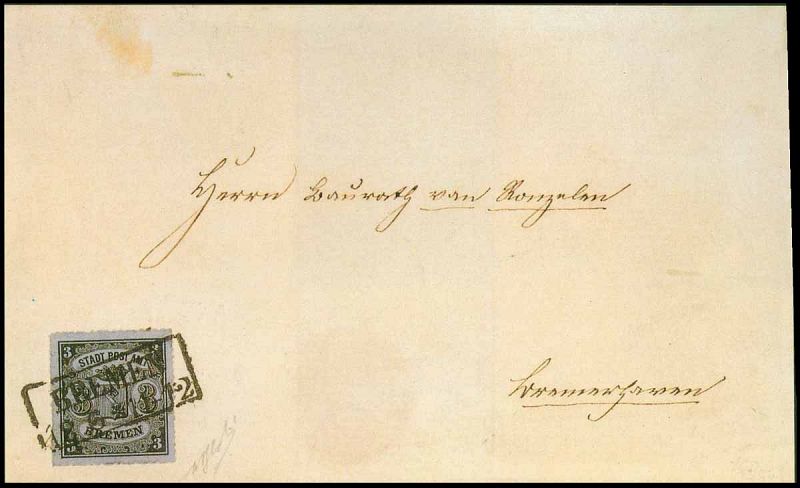 Herrn Baurath van Ronzelen
Bremerhaven
3 3
STADT POST AMT
BREMEN
3 3
BREMEN
3 3